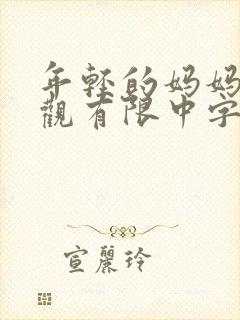 年轻的妈妈
觀有限中字
宣麗玲